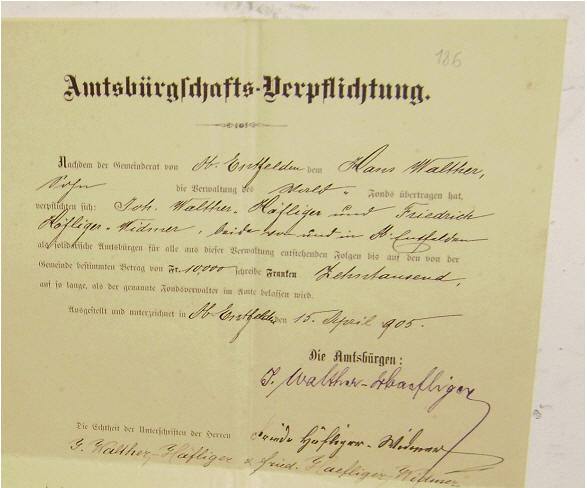 186
Amtsbürgschafts-Verpflichtung.
Nachdem der Gemeinderat von Ob. Entfelden dem Hans Walther,
Sohn die Verwaltung des Fonds übertragen hat,
verpflichten sich: Joh. Walther-Häfliger und Friedrich
Häfliger-Widmer, beide von und in Ob. Entfelden
als solidarische Amtsbürgen für alle aus dieser Verwaltung entstehenden Folgen bis auf den von der
Gemeinde bestimmten Betrag von Fr. 10,000 schreibe Franken Zehntausend,
auf so lange, als der genannte Fondsverwalter im Amte belassen wird.
Ausgestellt und unterzeichnet in Ob. Entfelden 15. April 905.
Die Amtsbürgen:
J. Walther-Haefliger
Die Echtheit der Unterschriften der Herren Häfliger-Widmer
J. Walther-Häfliger & Fried. Haefliger-Widmer